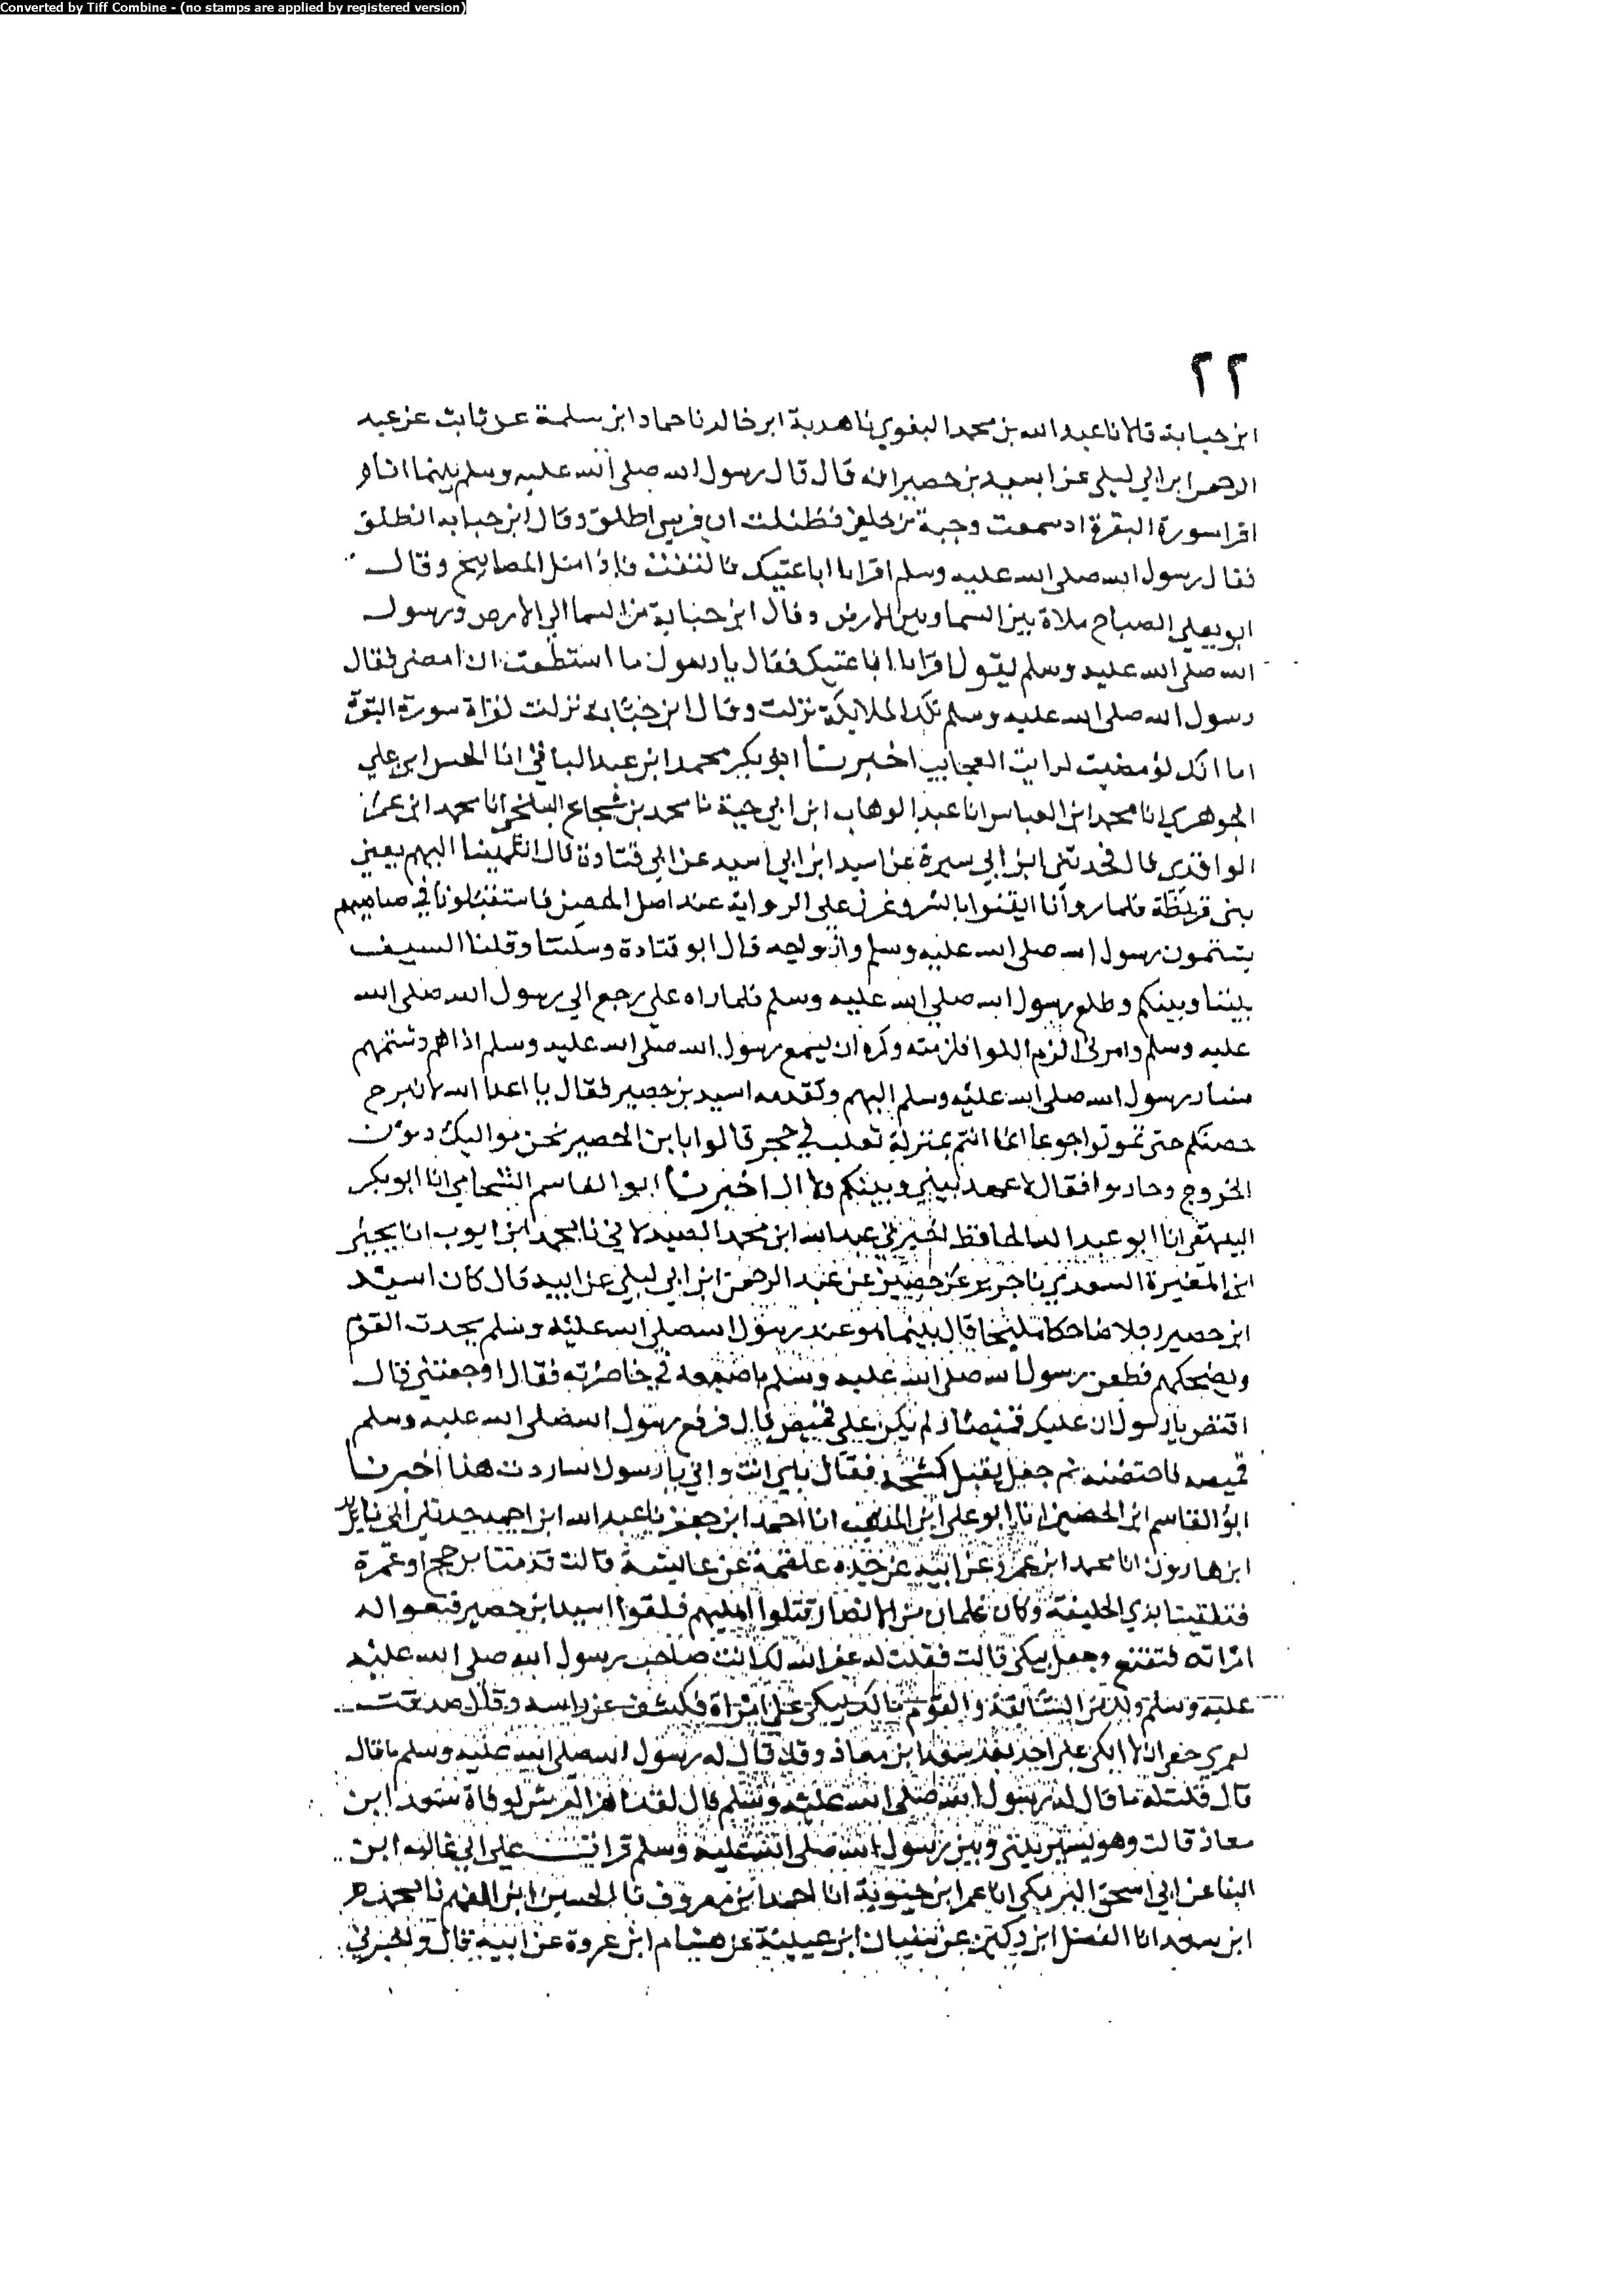 Converted by Tiff Combine - (no stamps are applied by registered version)
٢٢
ابن حبابة قالا نا عبد الله بن محمد البغوي نا هدبة ابن خالد نا حماد ابن سلمة عن ثابت عن عبد
الرحمن ابن ابي ليلى عن اسيد بن حصير انه قال قال رسول الله صلى الله عليه وسلم بينما انا
اقرا سورة البقرة اذ سمعت وجبة من خلفي فظننت ان فرسي اطلق وقال ابن حبابه انطلق
فقال رسول الله صلى الله عليه وسلم اقرا ابا عتيك فالتفت فاذا امثل المصابيح وقال
ابو يعلى الصباح ملاة بين السما وبين الارض وقال ابن حبابة من السما الى الارض ورسول
الله صلى الله عليه وسلم يقول اقرا ابا عتيك فقال يا رسول ما استطعت ان امضي فقال
رسول الله صلى الله عليه وسلم تلك الملايكة نزلت وقال ابن حبابة نزلت لقراة سورة البقرة
اما انك لو مضيت لرايت العجايب اخبرنا ابو بكر محمد ابن عبد الباقي انا الحسن ابن علي
الجوهري انا محمد ابن العباس انا عبد الوهاب ابن ابي حية نا محمد بن شجاع البلخي انا محمد ابن عمر
الواقدي قال فحدثني ابن ابي سبرة عن اسيد ابن ابي اسيد عن ابي قتادة قال انتهينا اليهم يعني
بنى قريظة فلما راونا ايقنوا بالشر وغرز علي الراية عند اصل الحصن فاستقبلونا في صياصيهم
يشتمون رسول الله صلى الله عليه وسلم وازواجه قال ابو قتادة وسكتنا وقلنا السيف
بيننا وبينكم وطلع رسول الله صلى الله عليه وسلم فلما راه علي رجع الى رسول الله صلى الله
عليه وسلم وامرني الزم اللوا فلزمته وكره ان يسمع رسول الله صلى الله عليه وسلم اذاهم وشتمهم
فسار رسول الله صلى الله عليه وسلم اليهم وتقدمه اسيد بن حصير فقال يا اعدا الله لا نبرح
حصنكم حتى تموتوا جوعا انما انتم بمنزلة ثعلب في حجر قالوا يا بن الحصير نحن مواليك دون
الخروج وخاروا فقال لا عهد بيني وبينكم ولا ال اخبرنا ابو القاسم الشحامي انا ابو بكر
البيهقي انا ابو عبد الله الحافظ اخبرني عبد الله ابن محمد الصيدلاني نا محمد ابن ايوب انا يحيى
ابن المغيرة السعدي نا جرير عن حصين عن عبد الرحمن ابن ابي ليلى عن ابيه قال كان اسيد
ابن حصير رجلا ضاحكا مليحا قال بينما هو عند رسول الله صلى الله عليه وسلم يحدث القوم
ويضحكهم فطعن رسول الله صلى الله عليه وسلم باصبعه في خاصرته فقال اوجعتني قال
اقتص يا رسول ان عليك قميصا ولم يكن علي قميص قال فرفع رسول الله صلى الله عليه وسلم
قميصه فاحتضنه ثم جعل يقبل كشحه فقال بابي انت وامي يا رسول الله اردت هذا اخبرنا
ابو القاسم ابن الحصين انا ابو علي ابن المذهب انا احمد ابن جعفر نا عبد الله ابن احمد حدثني ابي نا يزيد
ابن هارون انا محمد ابن عمرو عن ابيه عن جده علقمة عن عايشة قالت قدمنا من حج او عمرة
فتلقينا بذي الحليفة وكان غلمان من الانصار تلقوا اهليهم فلقوا اسيد ابن حصير فنعوا له
امراته فتقنع وجعل يبكي قالت فقلت له غفر الله لك انت صاحب رسول الله صلى الله عليه
عليه وسلم ولك من السابقة والقدم مالك تبكي على امراة فكشف عن راسه وقال صدقت
لعمري حقي ان لا ابكي على احد بعد سعد ابن معاذ وقد قال له رسول الله صلى الله عليه وسلم ما قال
قال قلت له ما قال له رسول الله صلى الله عليه وسلم قال لقد اهتز العرش لوفاة سعد ابن
معاذ قالت وهو يسير بيني وبين رسول الله صلى الله عليه وسلم قرات على ابي غالب ابن
البنا عن ابي اسحق البرمكي انا عمر ابن حيوية انا احمد ابن معروف نا الحسين ابن الفهم نا محمد
ابن سعد انا الفضل ابن دكين عن سفيان ابن عيينة عن هشام ابن عروة عن ابيه قال واخبرني